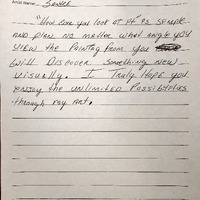 Artist Name: Sewell
"How can you look at it" is simple
and plan no matter what angle you
view the Painting from you
will Discover something new
visually. I Truly Hope you
enjoy the unlimited Possibilities
through my Art.